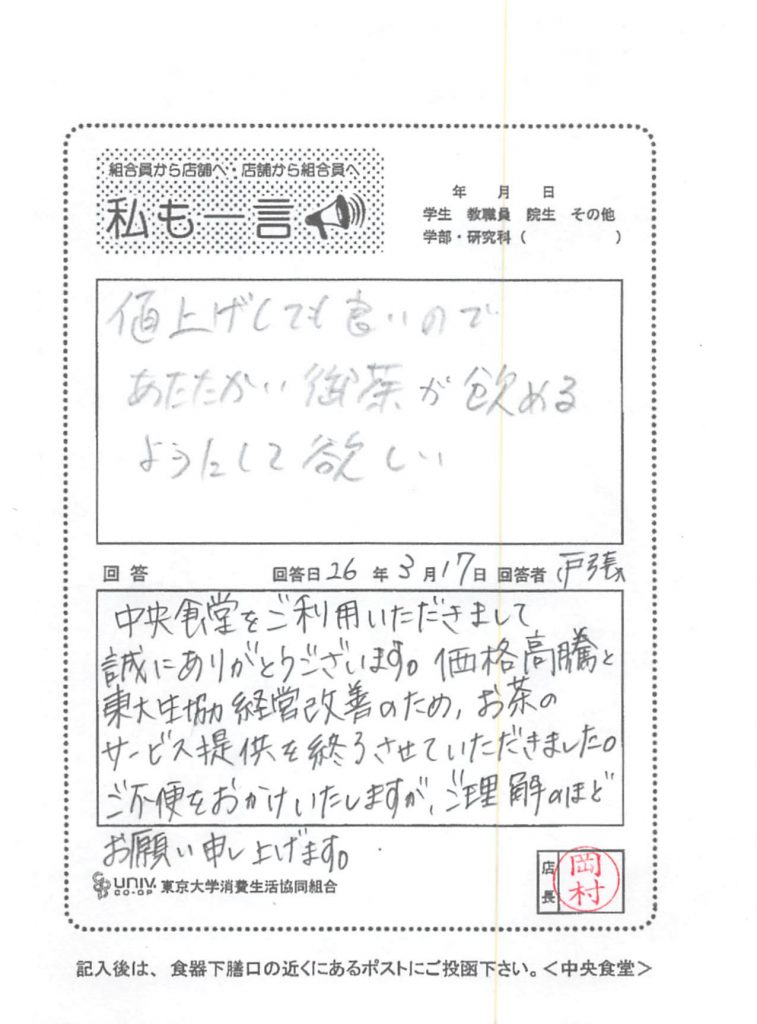 組合員から店舗へ・店舗から組合員へ
私も一言
年 月 日
学生 教職員 院生 その他
学部・研究科（ ）
値上げしても良いので
あたたかい御茶が飲める
ようにして欲しい
回答 回答日26年3月17日 回答者 戸張
中央食堂をご利用いただきまして
誠にありがとうございます。価格高騰と
東大生協経営改善のため、お茶の
サービス提供を終了させていただきました。
ご不便をおかけいたしますが、ご理解のほど
お願い申し上げます。
UNIV. CO-OP 東京大学消費生活協同組合
店長 岡村
記入後は、食器下膳口の近くにあるポストにご投函下さい。＜中央食堂＞